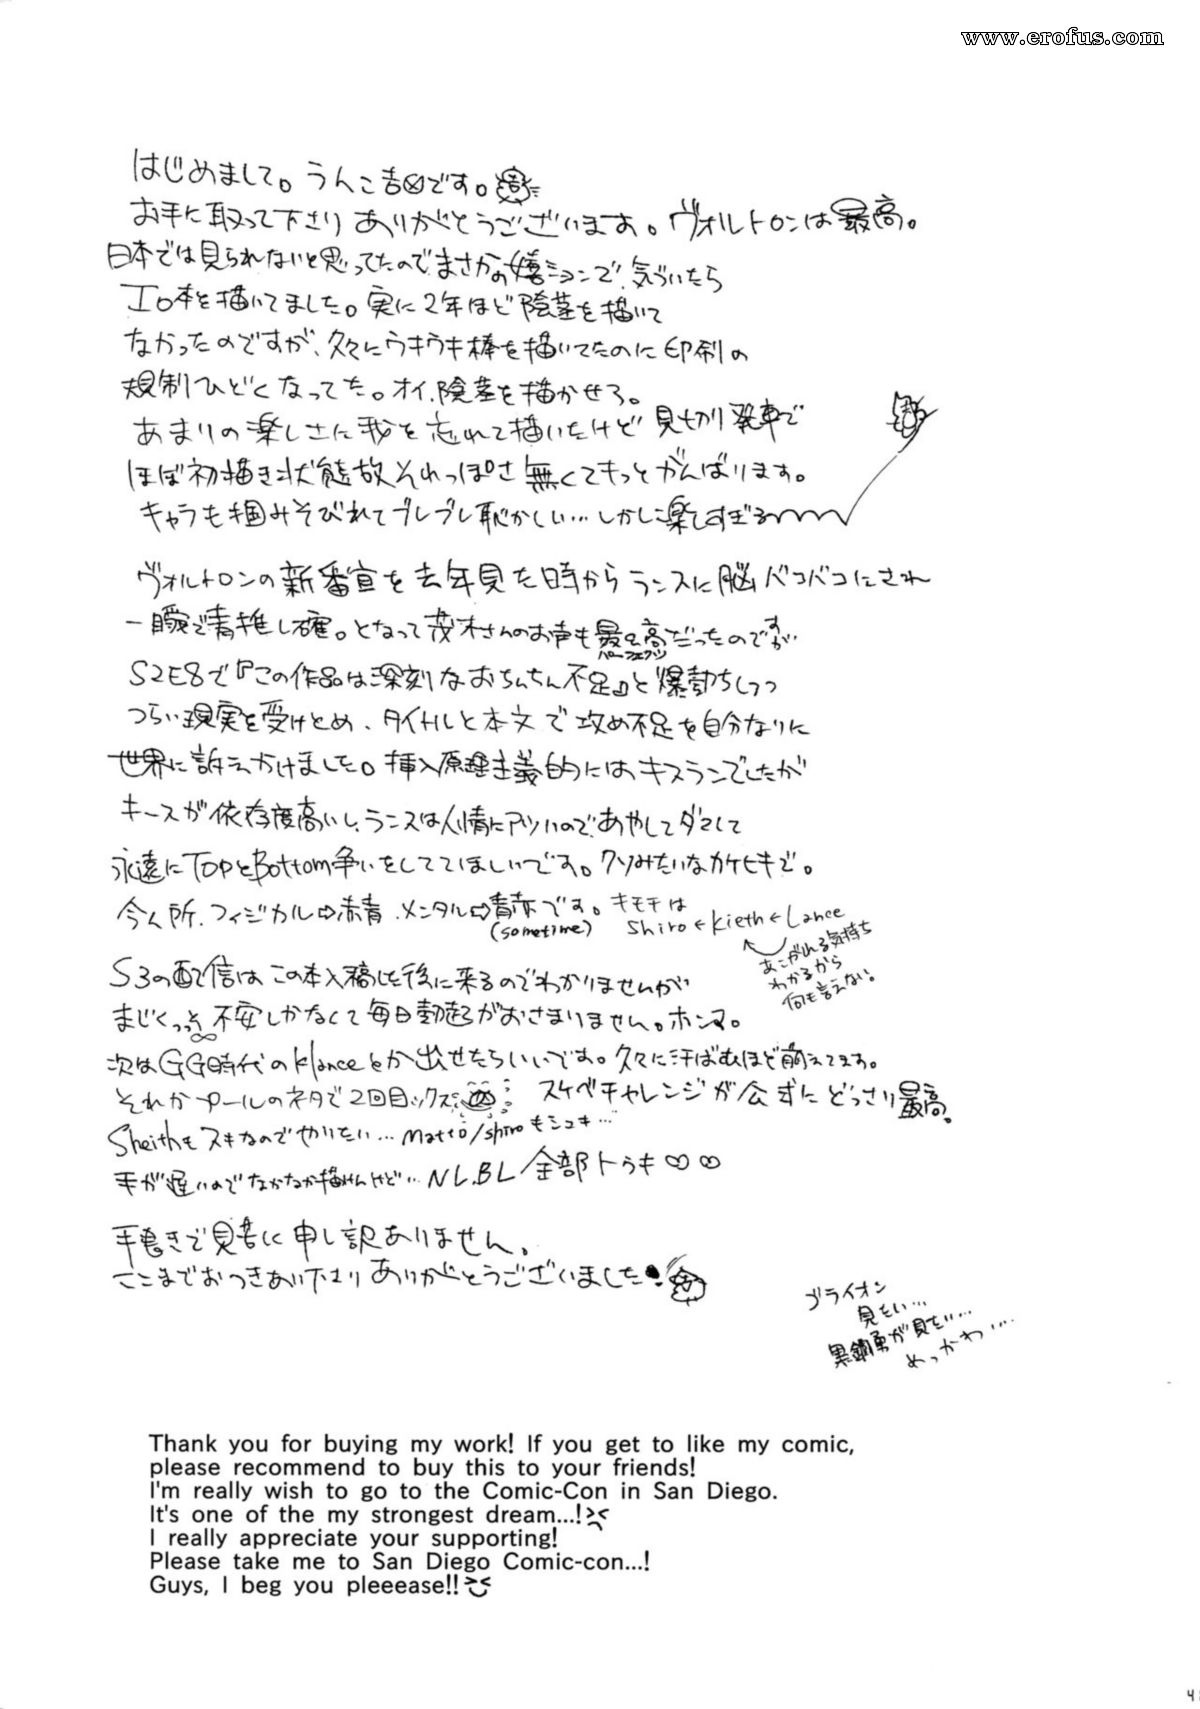 www.erofus.com
はじめまして。うんこ吉です。
お手に取って下さりありがとうございます。ヴォルトロンは最高。
日本では見られないと思ってたのでまさかの嬉ションで、気づいたら
エロ本を描いてました。実に2年ほど陰茎を描いて
なかったのですが、久々にウキウキ棒を描いてたのに印刷の
規制ひどくなってた。オイ、陰茎を描かせろ。
あまりの楽しさに我を忘れて描いたけど見切り発車で
ほぼ初描き状態故それっぽさ無くてもっとがんばります。
キャラも掴みそびれてブレブレ恥かしい…しかし楽しすぎる
ヴォルトロンの新番宣を去年見た時からランスに脳バコバコにされ
一瞬で青推し確。となって茂木さんのお声も最&高だったのですが
パーフェクツ
S2E8で『この作品は深刻なおちんちん不足』と爆勃ちしつつ
つらい現実を受けとめ、タイトルと本文で攻め不足を自分なりに
世界に訴えかけました。挿入原理主義的にはキスランでしたが
キースが依存度高いし、ランスは人情にアツいので、あやしてダマして
永遠にTopとBottom争いをしてほしいです。クソみたいなカケヒキで。
今ん所、フィジカル⇨赤青、メンタル⇨青赤です。キモチは
(sometime) Shiro←Kieth←Lance
あこがれる気持ち
わかるから
何も言えない。
S3の配信はこの本入稿した後に来るのでわかりませんが
まじくっそ不安しかなくて毎日勃起がおさまりません。ホンマ。
次はGG時代のklanceとか出せたらいいです。久々に汗ばむほど萌えてます。
それかプールのネタで2回目ックス スケベチャレンジが公式にどっさり最高。
Sheithもスキなのでやりたい…matto/shiroもシュキ…
手が遅いのでなかなか描けんけど…NL.BL/全部トゥキ♡♡
手書きで見苦しく申し訳ありません。
ここまでおつきあい下さりありがとうございました
ゴライオン
見たい…
黒鋼勇が見たい…
めっかわ…
Thank you for buying my work! If you get to like my comic,
please recommend to buy this to your friends!
I'm really wish to go to the Comic-Con in San Diego.
It's one of the my strongest dream...!
I really appreciate your supporting!
Please take me to San Diego Comic-con...!
Guys, I beg you pleeease!!